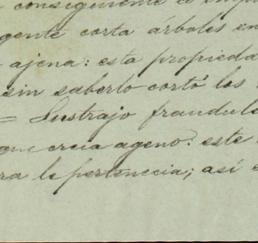 consiguiente
gente corta árboles en
ajena: esta propieda
sin saberlo cortó los
= Sustrajo fraudul
que creia ageno: este
ra le pertenecia; así